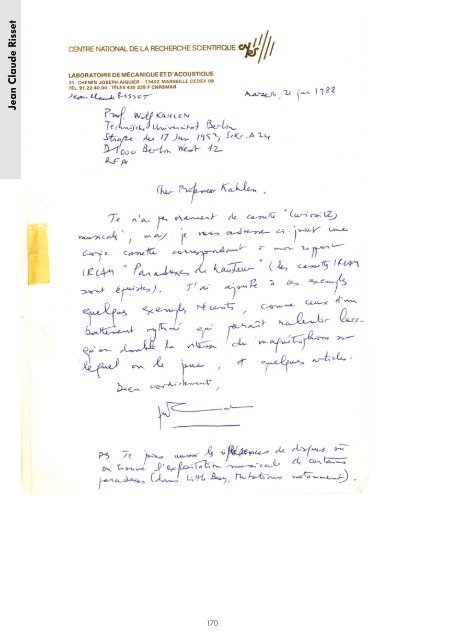 Jean Claude Risset
CENTRE NATIONAL DE LA RECHERCHE SCIENTIFIQUE CNRS
LABORATOIRE DE MÉCANIQUE ET D'ACOUSTIQUE
31, CHEMIN JOSEPH-AIGUIER - 13402 MARSEILLE CEDEX 09
TÉL. 91.22.40.00 - TÉLEX 430 225 F CNRSMAR
Jean Claude RISSET
Marseille, 21 juin 1988
Prof. Wolf KAHLEN
Technische Universität Berlin
Straße des 17 Juni 1953, Sekr. A 24
D 1000 Berlin West 12
RFA
Cher Professeur Kahlen,
Je n'ai pas vraiment de cassette "Curiosités
musicales", mais je vous adresse ci-joint une
copie cassette correspondant à mon rapport
IRCAM "Paradoxes de hauteur" (les cassettes IRCAM
sont épuisées). J'ai ajouté à ces exemples
quelques exemples récents, comme ceux d'un
battement rythmé qui paraît ralentir lors-
qu'on double la vitesse du magnétophone sur
lequel on le joue, et quelques articles.
Bien cordialement,
PS Je joins aussi les références de disques où
on trouve l'exploitation musicale de certains
paradoxes (dans Little Boy, Mutations notamment).
170